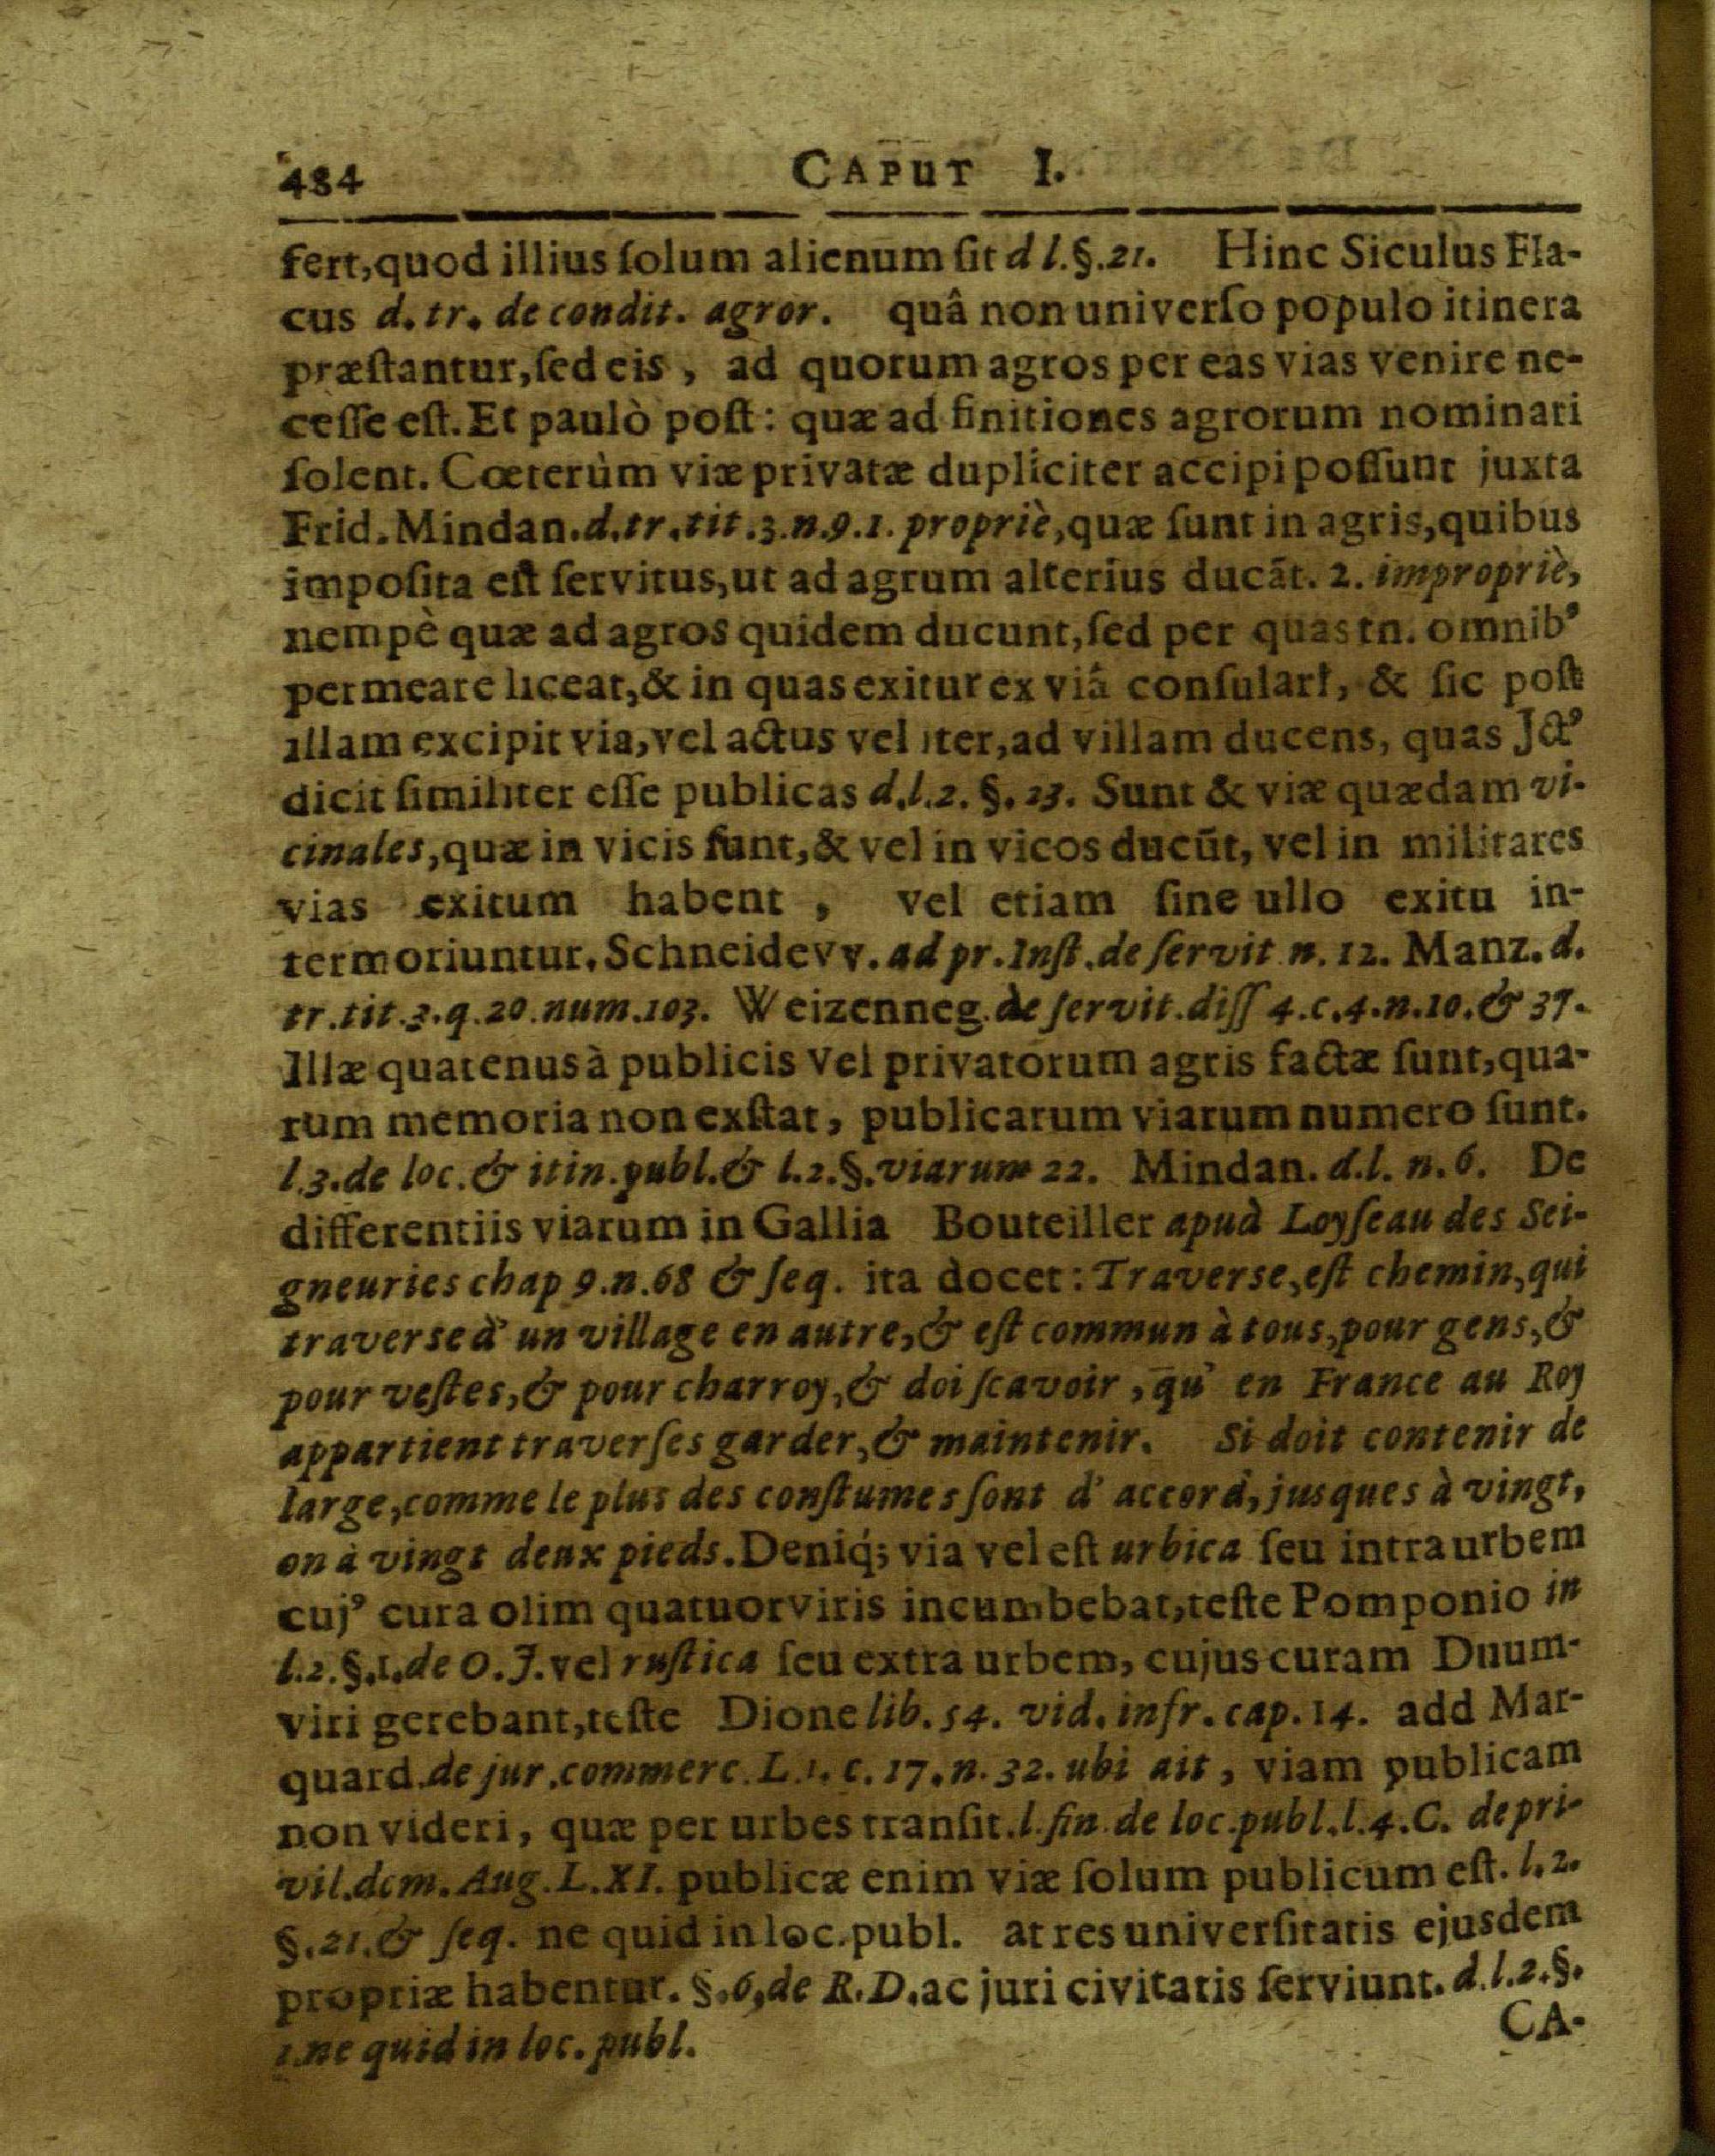 484 CAPUT I.
fert,quod illius ſolum alienum ſit d l.§.21. Hinc Siculus Fla-
cus d.tr. de condit. agror. quâ non univerſo populo itinera
præſtantur,ſed eis, ad quorum agros per eas vias venire ne-
ceſſe eſt. Et paulò poſt: quæ ad finitiones agrorum nominari
ſolent. Cœterùm viæ privatæ dupliciter accipi poſſunt juxta
Frid. Mindan.d.tr.tit.3.n.9.1. propriè,quæ ſunt in agris,quibus
impoſita eſt ſervitus,ut ad agrum alterius ducãt. 2. impropriè,
nempè quæ ad agros quidem ducunt,ſed per quas tn. omnib'
permeare liceat,& in quas exitur ex viâ conſulari, & ſic poſt
illam excipit via,vel actus vel iter,ad villam ducens, quas Jct'
dicit ſimiliter eſſe publicas d.l.2. §. 23. Sunt & viæ quædam vi-
cinales,quæ in vicis ſunt,& vel in vicos ducũt, vel in militares
vias exitum habent, vel etiam ſine ullo exitu in-
termoriuntur. Schneidevv. ad pr.Inſt.de ſervit n. 12. Manz. d.
tr.tit.3.q.20.num.103. Weizenneg.de ſervit.diſſ 4.c.4.n.10.& 37.
Illæ quatenus à publicis vel privatorum agris factæ ſunt,qua-
rum memoria non exſtat, publicarum viarum numero ſunt.
l.3.de loc.& itin.publ.& l.2.§.viarum 22. Mindan. d.l. n.6. De
differentiis viarum in Gallia Bouteiller apud Loyſeau des Sei-
gneuries chap 9.n.68 & ſeq. ita docet: Traverse,eſt chemin,qui
traverse d' un village en autre,& eſt commun à tous,pour gens,&
pour veſtes,& pour charroy,& doi ſcavoir, qu' en France au Roy
appartient traverſes garder,& maintenir. Si doit contenir de
large,comme le plus des conſtumes ſont d' accord,jusques à vingt,
on à vingt deux pieds. Deniq́; via vel eſt urbica ſeu intra urbem
cuj' cura olim quatuorviris incumbebat,teſte Pomponio in
l.2.§.1.de O.J. vel ruſtica ſeu extra urbem, cujus curam Duum-
viri gerebant,teſte Dione lib. 54. vid. infr. cap. 14. add Mar-
quard.de jur.commerc. L.1. c. 17.n. 32. ubi ait, viam publicam
non videri, quæ per urbes tranſit.l.fin.de loc.publ.l.4.C. de pri-
vil.dom.Aug.L.XI. publicæ enim viæ ſolum publicum eſt. l.2.
§.21.& ſeq. ne quid in loc.publ. at res univerſitatis ejusdem
propriæ habentur. §.6,de R.D.ac juri civitatis ſerviunt. d.l.2.§.
2.ne quid in loc. publ.
CA-